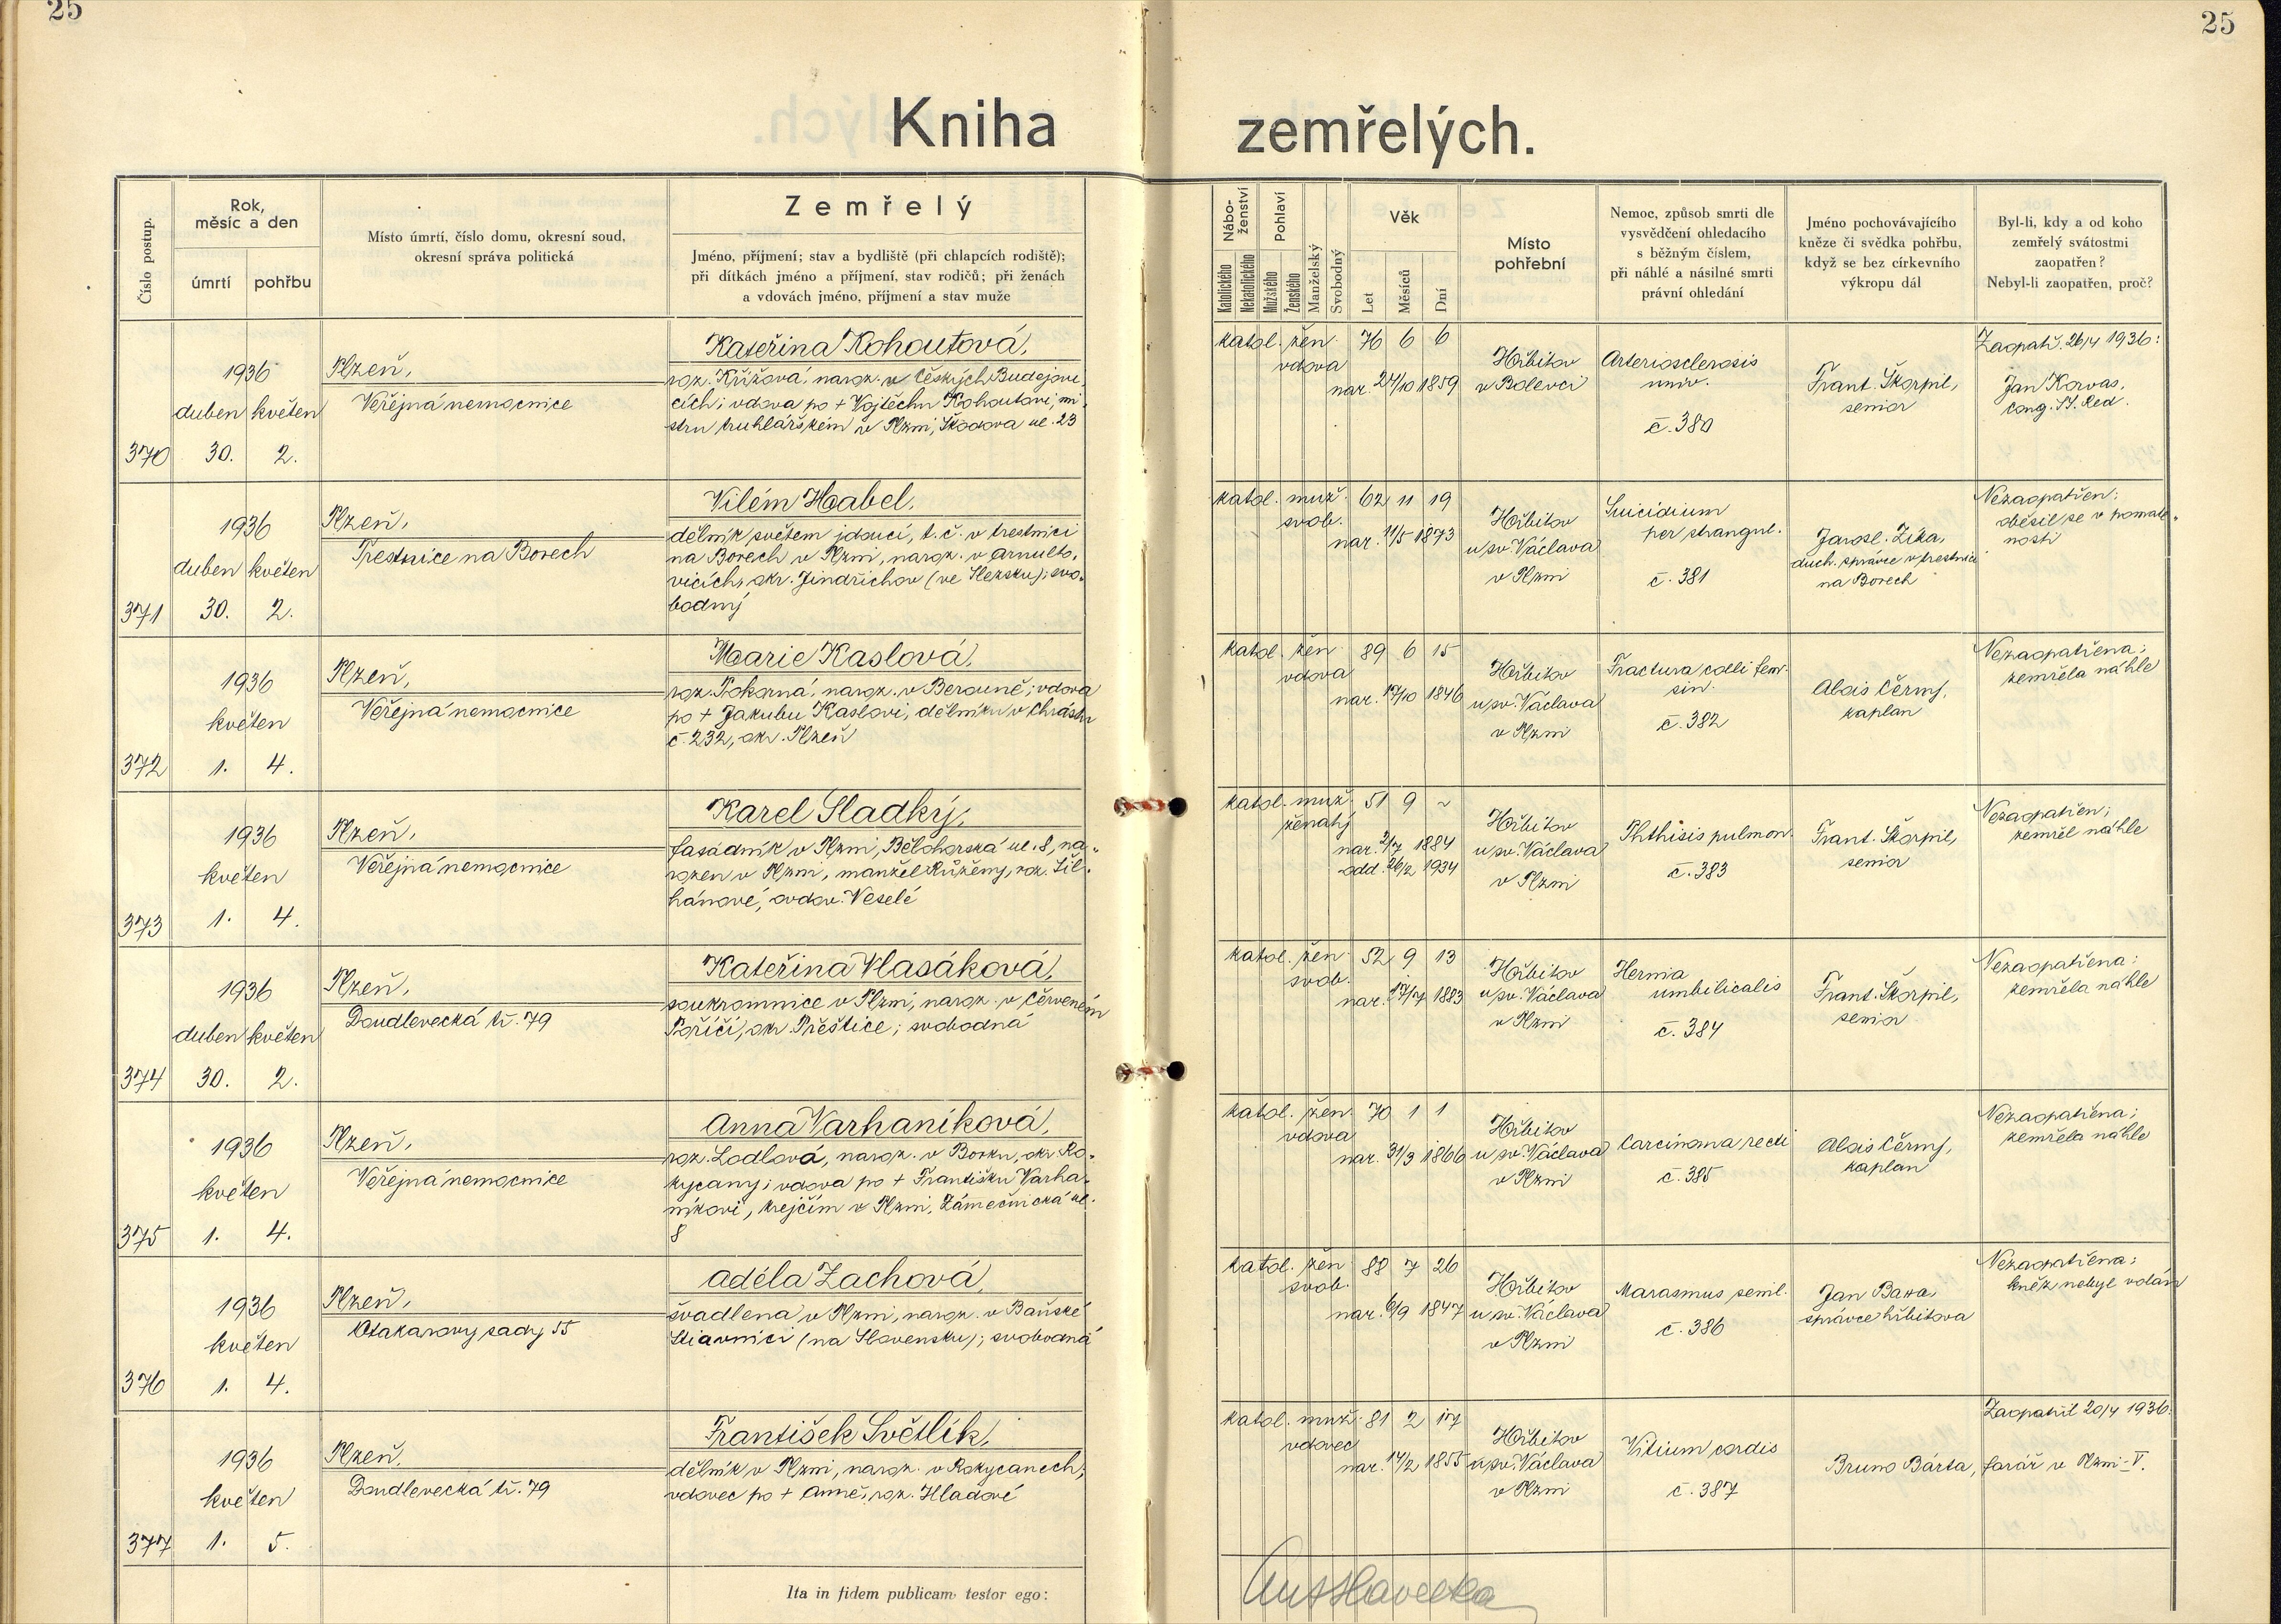 25
25
Kniha zemřelých.
Číslo postup.
Rok,
měsíc a den
úmrtí
pohřbu
Místo úmrtí, číslo domu, okresní soud,
okresní správa politická
Zemřelý
Jméno, příjmení; stav a bydliště (při chlapcích rodiště);
při dítkách jméno a příjmení, stav rodičů; při ženách
a vdovách jméno, příjmení a stav muže
Nábo-
ženství
Katolického
Nekatolického
Pohlaví
Mužského
Ženského
Manželský
Svobodný
Věk
Let
Měsíců
Dní
Místo
pohřební
Nemoc, způsob smrti dle
vysvědčení ohledacího
s běžným číslem,
při náhlé a násilné smrti
právní ohledání
Jméno pochovávajícího
kněze či svědka pohřbu,
když se bez církevního
výkropu dál
Byl-li, kdy a od koho
zemřelý svátostmi
zaopatřen?
Nebyl-li zaopatřen, proč?
370
1936
duben květen
30. 2.
Plzeň,
Veřejná nemocnice
Kateřina Kohoutová,
roz. Křížová, naroz. v Českých Budějovi-
cích; vdova po + Vojtěchu Kohoutovi, mi-
stru truhlářském v Plzni, Škodova ul. 23
katol. žen. 76 6 6
vdova
nar. 24/10 1859
Hřbitov
v Bolevci
Arteriosclerosis
univ.
č. 380
Frant. Škorpil,
senior
Zaopatř. 26/4 1936:
Jan Korvas,
cong. SS. Red.
371
1936
duben květen
30. 2.
Plzeň,
Trestnice na Borech
Vilém Habel,
dělník světem jdoucí, t. č. v trestnici
na Borech v Plzni, naroz. v Arnulto-
vicích, okr. Jindřichov (ve Slezsku); svo-
bodný
katol. muž. 62 11 19
svob.
nar. 11/5 1873
Hřbitov
u sv. Václava
v Plzni
Suicidium
per strangul.
č. 381
Jarosl. Zíka,
duch. správce v trestnici
na Borech
Nezaopatřen;
oběsil se v pomate-
nosti
372
1936
květen
1. 4.
Plzeň,
Veřejná nemocnice
Marie Kaslová,
roz. Pokorná, naroz. v Berouně; vdova
po + Jakubu Kaslovi, dělníku v Chrástu
č. 232, okr. Plzeň
katol. žen 89 6 15
vdova
nar. 17/10 1846
Hřbitov
u sv. Václava
v Plzni
Fractura colli fem.
sin.
č. 382
Alois Černý,
kaplan
Nezaopatřena;
zemřela náhle
373
1936
květen
1. 4.
Plzeň,
Veřejná nemocnice
Karel Sladký,
fasádník v Plzni, Bělohorská ul. 8, na-
rozen v Plzni, manžel Růženy, roz. Šil-
hánové, ovdov. Veselé
katol. muž. 51 9 ~
ženatý
nar. 2/7 1884
odd. 26/2 1934
Hřbitov
u sv. Václava
v Plzni
Phthisis pulmon.
č. 383
Frant. Škorpil,
senior
Nezaopatřen;
zemřel náhle
374
1936
duben květen
30. 2.
Plzeň,
Doudlevecká tř. 79
Kateřina Vlasáková,
soukromnice v Plzni, naroz. v Červeném
Poříčí, okr. Přeštice; svobodná
katol. žen 52 9 13
svob.
nar. 17/7 1883
Hřbitov
u sv. Václava
v Plzni
Hernia
umbilicalis
č. 384
Frant. Škorpil,
senior
Nezaopatřena;
zemřela náhle
375
1936
květen
1. 4.
Plzeň,
Veřejná nemocnice
Anna Varhaníková,
roz. Lodlová, naroz. v Borku, okr. Ro-
kycany; vdova po + Františku Varha-
níkovi, krejčím v Plzni, Zámečnická ul.
8
katol. žen. 70 1 1
vdova
nar. 31/3 1866
Hřbitov
u sv. Václava
v Plzni
Carcinoma recti
č. 385
Alois Černý,
kaplan
Nezaopatřena;
zemřela náhle
376
1936
květen
1. 4.
Plzeň,
Otakarovy sady 55
Adéla Zachová,
švadlena v Plzni, naroz. v Baňské
Štiavnici (na Slovensku); svobodná
katol. žen 88 7 26
svob.
nar. 6/9 1847
Hřbitov
u sv. Václava
v Plzni
Marasmus senil.
č. 386
Jan
správce hřbitova
Nezaopatřena;
kněz nebyl volán
377
1936
květen
1. 5.
Plzeň,
Doudlevecká tř. 79
František Světlík,
dělník v Plzni, naroz. v Rokycanech;
vdovec po + Anně, roz. Hladové
katol. muž. 81 2 17
vdovec
nar. 14/2 1855
Hřbitov
u sv. Václava
v Plzni
Vitium cordis
č. 387
Zaopatřil 20/4 1936.
Bruno Bárta, farář v Plzni-V.
Ita in fidem publicam testor ego: